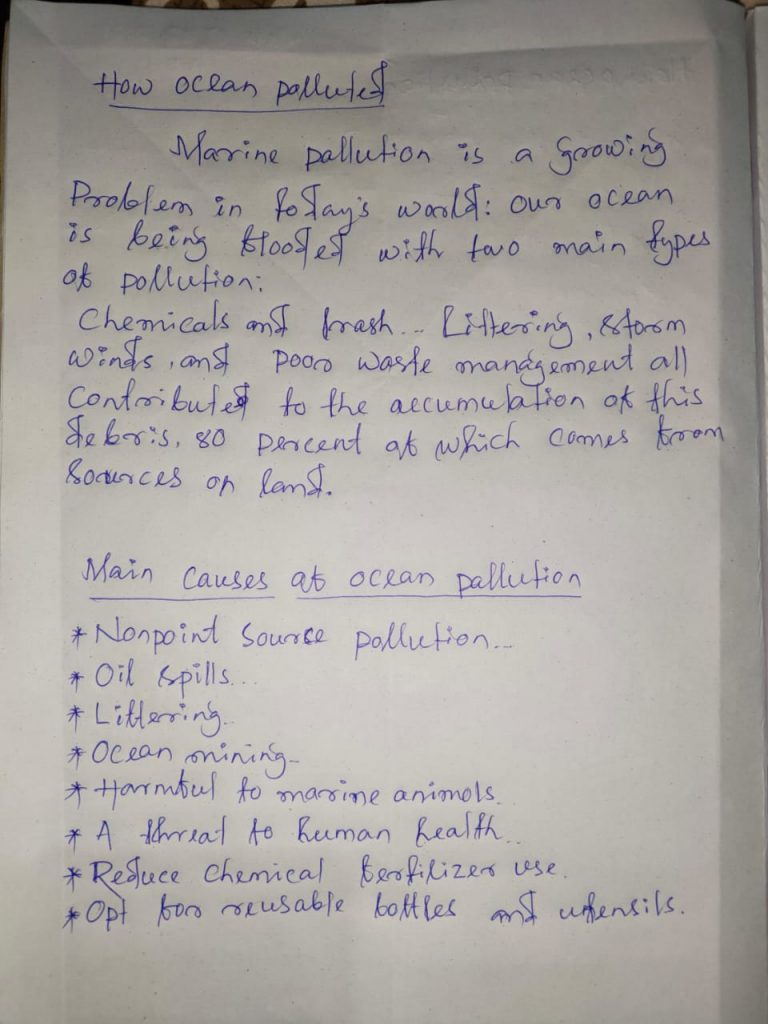 How ocean polluted
Marine pollution is a Growing
Problem in today's world: our ocean
is being flooded with two main types
of pollution:
Chemicals and trash... Littering, storm
winds, and poor waste management all
Contributed to the accumulation of this
debris, 80 percent of which comes from
Sources on land.
Main Causes of ocean pallution
* Nonpoint Source pollution...
* Oil spills...
* Littering..
* Ocean mining..
* Harmful to marine animals.
* A threat to human health..
* Reduce Chemical fertilizer use.
* Opt for reusable bottles and utensils.